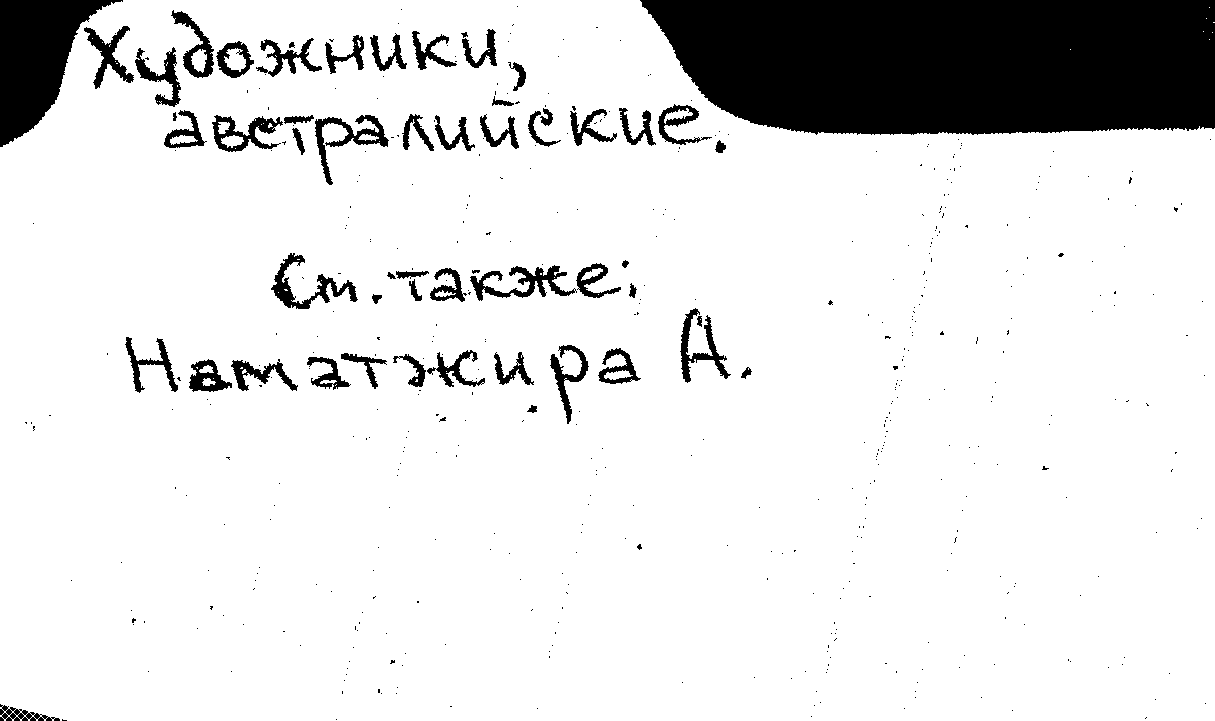 Художники,
австралийские.
См. также:
Наматжира А.